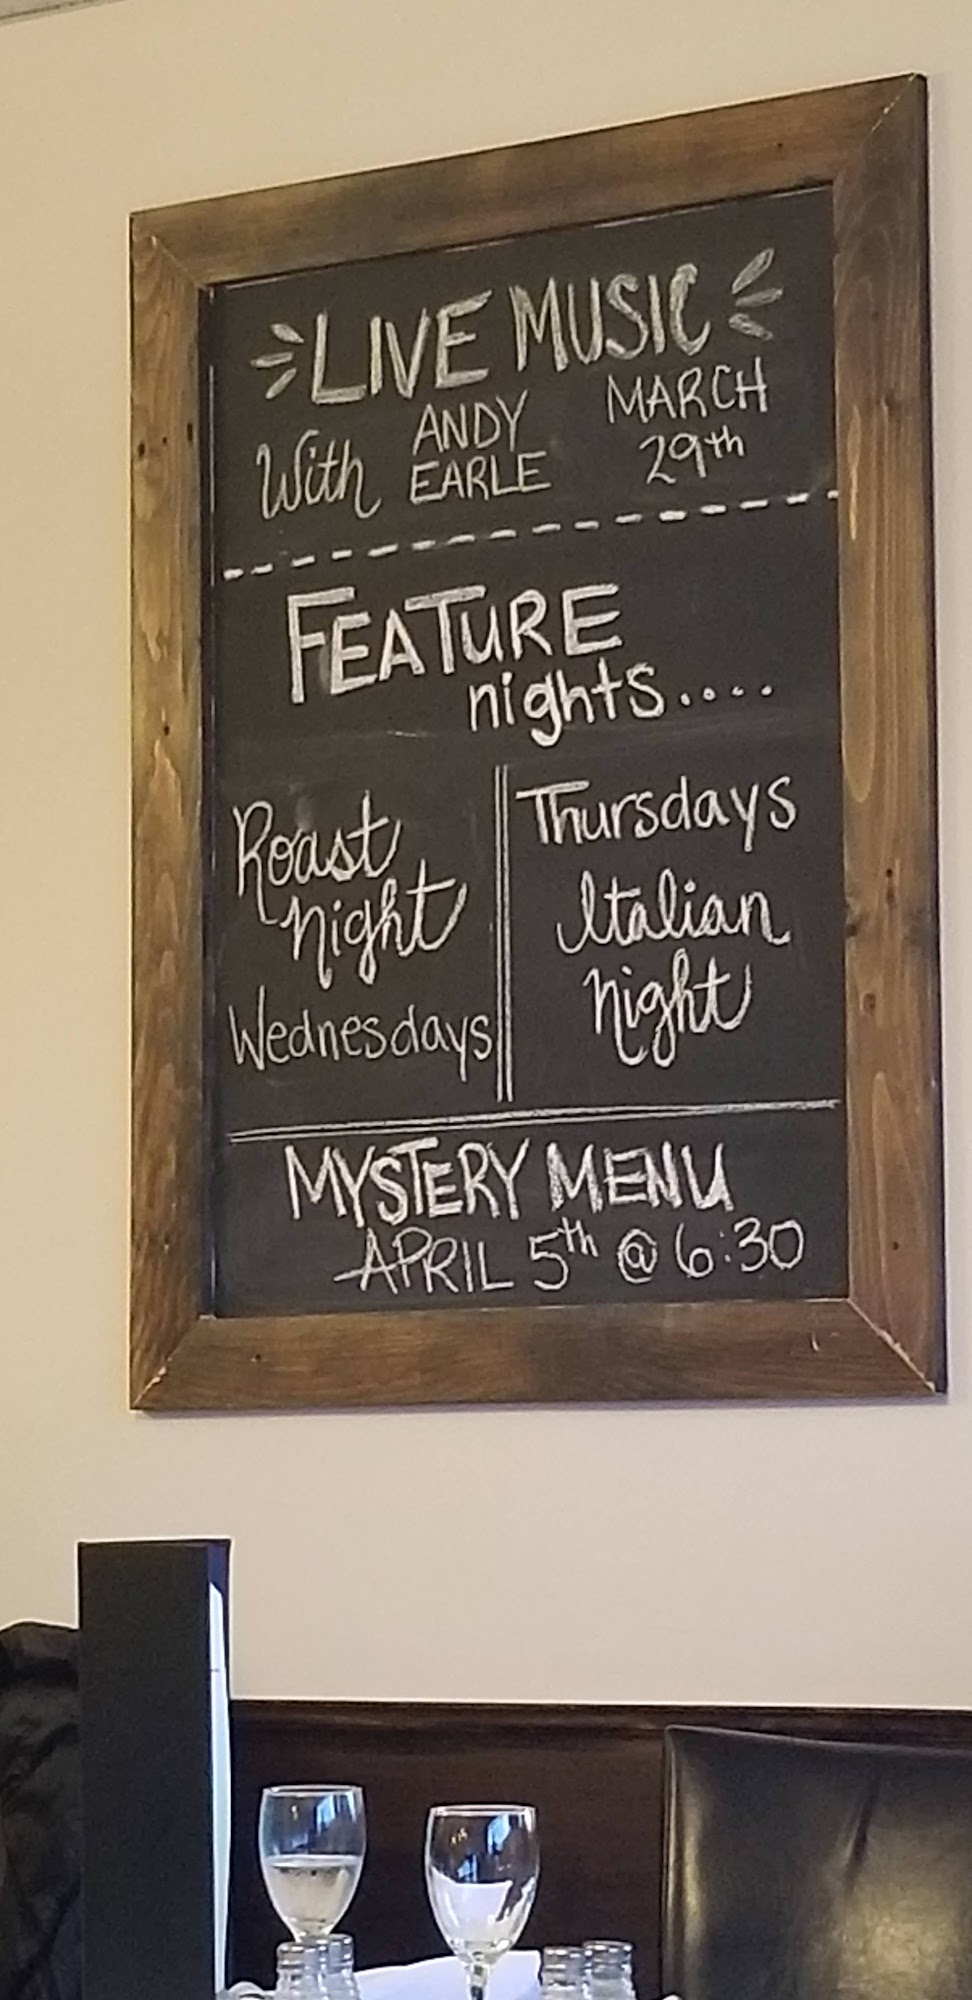 LIVE MUSIC
With ANDY EARLE MARCH 29th
FEATURE
nights....
Roast
night
Wednesdays
Thursdays
Italian
night
MYSTERY MENU
APRIL 5th @ 6:30